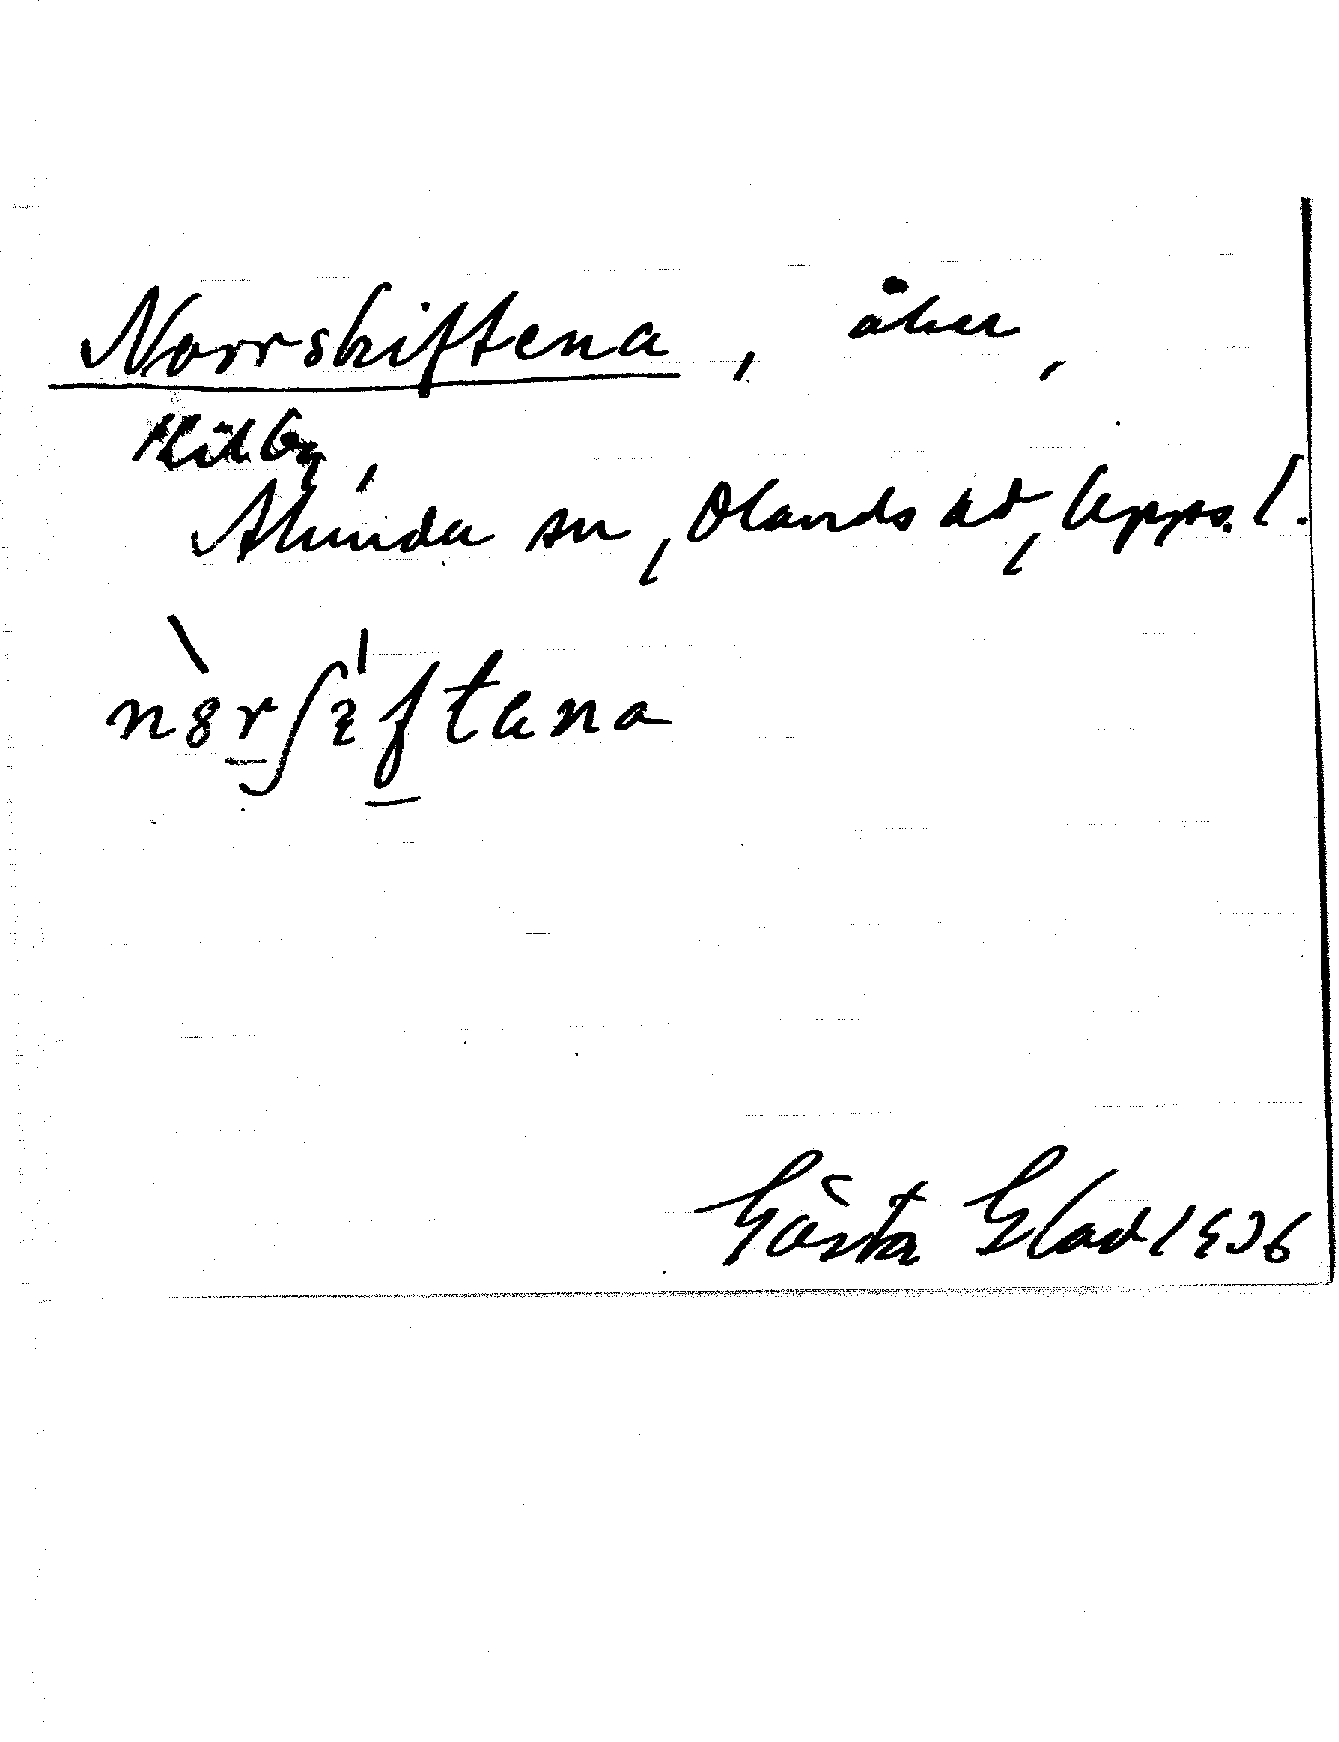 Norrskiftena, åker,
Kilby,
Alunda sn, Olands hd, Upps. l.
n8rʃɪftena
Gösta Glad 1936